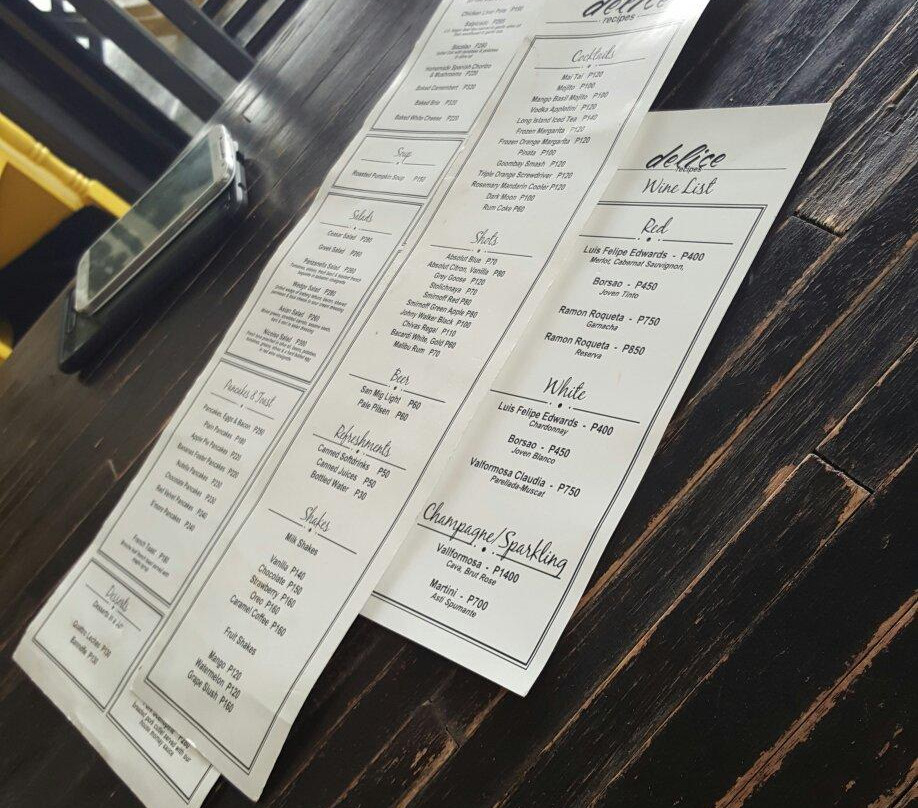 Chicken Liver Pate P190
Salpicado P280
Bacalao P260
Homemade Spanish Chorizo
& Mushrooms P220
Baked Camembert P320
Baked Brie P320
Baked White Cheese P220
Soup
Roasted Pumpkin Soup P150
Salads
Caesar Salad P280
Greek Salad P260
Panzanella Salad P260
Wedgy Salad P280
Asian Salad P260
Nicoise Salad P300
Pancakes & Toast
Pancakes, Eggs & Bacon P250
Plain Pancakes P190
Apple Pie Pancakes P220
Bananas Foster Pancakes P220
Nutella Pancakes P230
Chocolate Pancakes P230
Red Velvet Pancakes P240
S'mores Pancakes P240
French Toast P180
Desserts
Quattro Leches P130
delice
recipes
Cocktails
Mai Tai P120
Mojito P100
Mango Basil Mojito P100
Vodka Appletini P120
Long Island Iced Tea P140
Frozen Margarita P120
Frozen Orange Margarita P120
Pinata P100
Goombay Smash P120
Triple Orange Screwdriver P120
Rosemary Mandarin Cooler P120
Dark Moon P100
Rum Coke P60
Shots
Absolut Blue P70
Absolut Citron, Vanilla P80
Grey Goose P120
Stolichnaya P70
Smirnoff Red P60
Smirnoff Green Apple P80
Johny Walker Black P100
Chivas Regal P110
Bacardi White, Gold P60
Malibu Rum P70
Beer
San Mig Light P60
Pale Pilsen P60
Refreshments
Canned Softdrinks P50
Canned Juices P50
Bottled Water P30
Shakes
Milk Shakes
Vanilla P140
Chocolate P150
Strawberry P160
Oreo P160
Caramel Coffee P160
Fruit Shakes
Mango P120
Watermelon P120
Grape Slush P160
delice
recipes
Wine List
Red
Luis Felipe Edwards - P400
Merlot, Cabernat Sauvignon,
Borsao - P450
Joven Tinto
Ramon Roqueta - P750
Garnacha
Ramon Roqueta - P850
Reserva
White
Luis Felipe Edwards - P400
Chardonnay
Borsao - P450
Joven Blanco
Valformosa Claudia - P750
Parellada-Muscat
Champagne/Sparkling
Valformosa - P1400
Cava, Brut Rose
Martini - P700
Asti Spumante